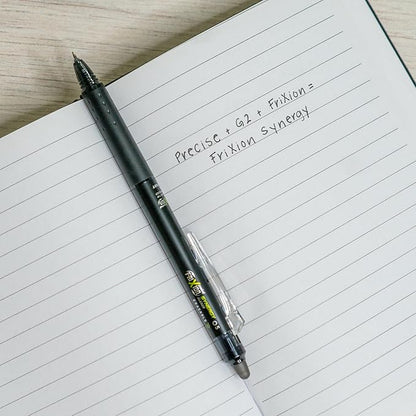 Precise + G2 + FriXion =
FriXion Synergy
FriXion
SYNERGY 0.5